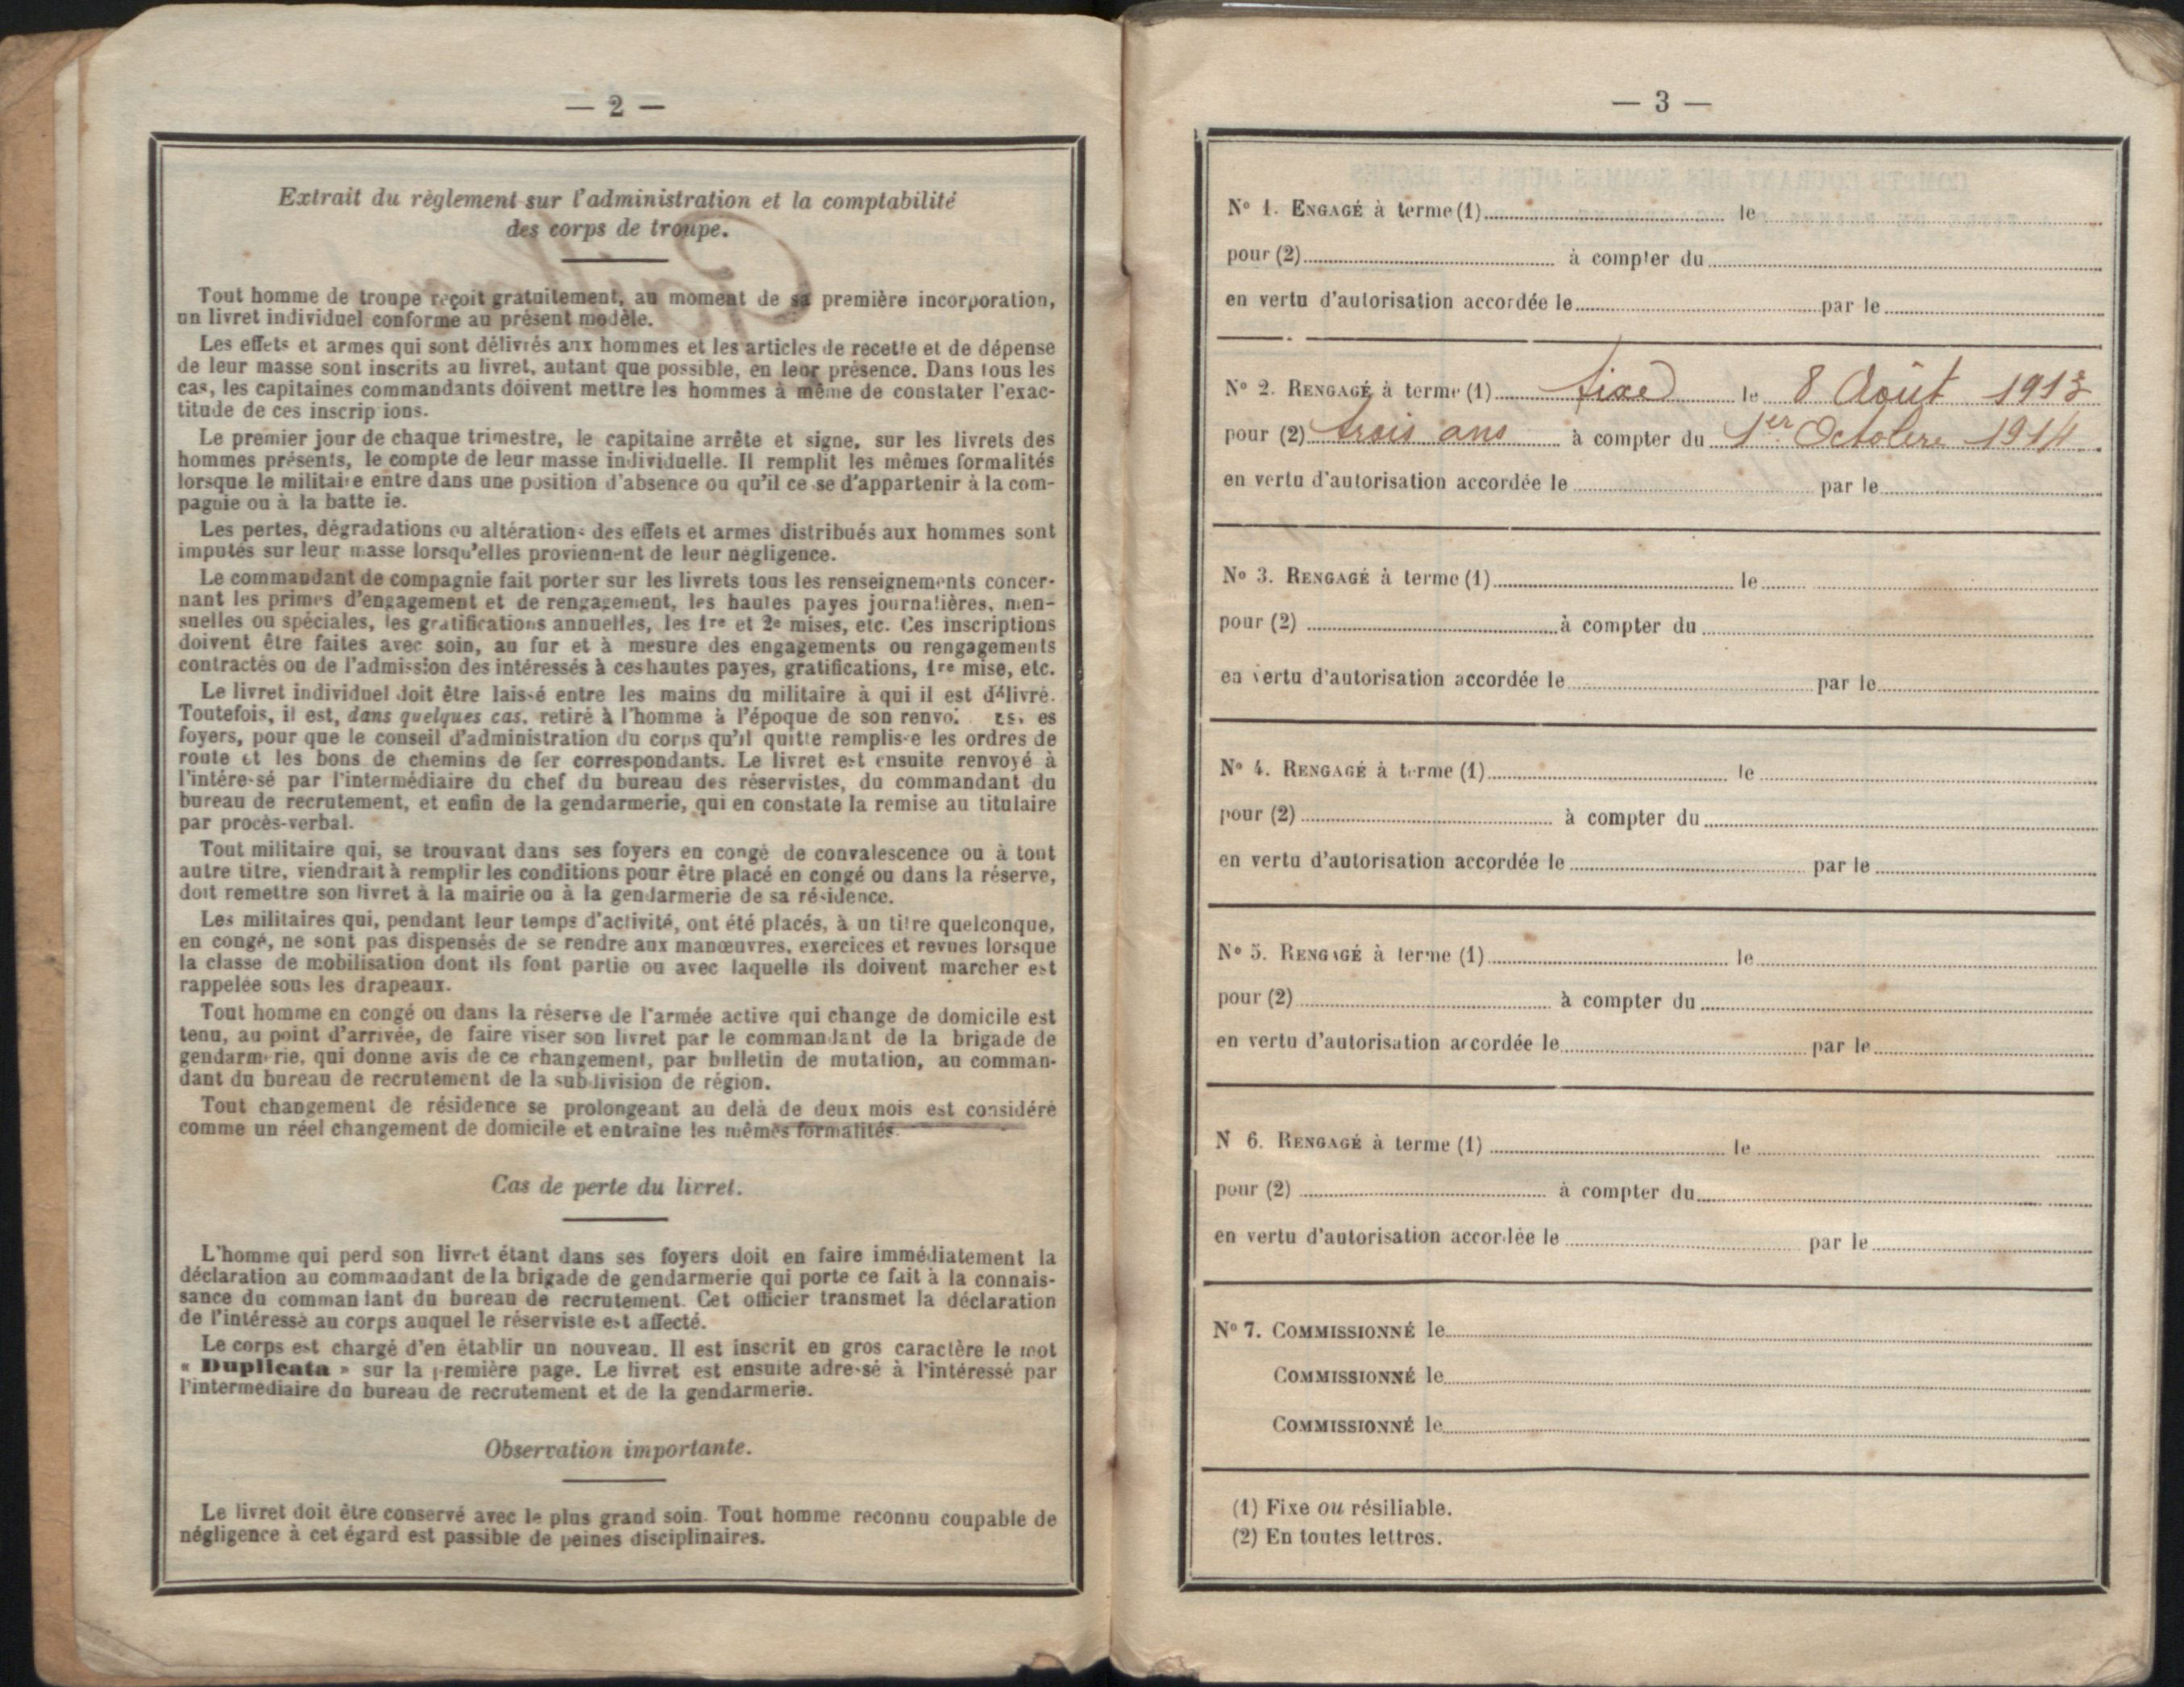 — 2 —
Extrait du règlement sur l'administration et la comptabilité
des corps de troupe.
Tout homme de troupe reçoit gratuitement, au moment de sa première incorporation,
un livret individuel conforme au présent modèle.
Les effets et armes qui sont délivrés aux hommes et les articles de recette et de dépense
de leur masse sont inscrits au livret, autant que possible, en leur présence. Dans tous les
cas, les capitaines commandants doivent mettre les hommes à même de constater l'exac-
titude de ces inscrip ions.
Le premier jour de chaque trimestre, le capitaine arrête et signe, sur les livrets des
hommes présents, le compte de leur masse individuelle. Il remplit les mêmes formalités
lorsque le militaire entre dans une position d'absence ou qu'il ce se d'appartenir à la com-
pagnie ou à la batte ie.
Les pertes, dégradations ou altérations des effets et armes distribués aux hommes sont
imputés sur leur masse lorsqu'elles proviennent de leur négligence.
Le commandant de compagnie fait porter sur les livrets tous les renseignements concer-
nant les primes d'engagement et de rengagement, les hautes payes journalières, men-
suelles ou spéciales, les gratifications annuelles, les 1re et 2e mises, etc. Ces inscriptions
doivent être faites avec soin, au fur et à mesure des engagements ou rengagements
contractés ou de l'admission des intéressés à ces hautes payes, gratifications, 1re mise, etc.
Le livret individuel doit être laissé entre les mains du militaire à qui il est délivré.
Toutefois, il est, dans quelques cas, retiré à l'homme à l'époque de son renvoi es
foyers, pour que le conseil d'administration du corps qu'il quitte remplisse les ordres de
route et les bons de chemins de fer correspondants. Le livret est ensuite renvoyé à
l'intéressé par l'intermédiaire du chef du bureau des réservistes, du commandant du
bureau de recrutement, et enfin de la gendarmerie, qui en constate la remise au titulaire
par procès-verbal.
Tout militaire qui, se trouvant dans ses foyers en congé de convalescence ou à tout
autre titre, viendrait à remplir les conditions pour être placé en congé ou dans la réserve,
doit remettre son livret à la mairie ou à la gendarmerie de sa résidence.
Les militaires qui, pendant leur temps d'activité, ont été placés, à un titre quelconque,
en congé, ne sont pas dispensés de se rendre aux manœuvres, exercices et revues lorsque
la classe de mobilisation dont ils font partie ou avec laquelle ils doivent marcher est
rappelée sous les drapeaux.
Tout homme en congé ou dans la réserve de l'armée active qui change de domicile est
tenu, au point d'arrivée, de faire viser son livret par le commandant de la brigade de
gendarmerie, qui donne avis de ce changement, par bulletin de mutation, au comman-
dant du bureau de recrutement de la subdivision de région.
Tout changement de résidence se prolongeant au delà de deux mois est considéré
comme un réel changement de domicile et entraîne les mêmes formalités.
Cas de perte du livret.
L'homme qui perd son livret étant dans ses foyers doit en faire immédiatement la
déclaration au commandant de la brigade de gendarmerie qui porte ce fait à la connais-
sance du commandant du bureau de recrutement. Cet officier transmet la déclaration
de l'intéressé au corps auquel le réserviste est affecté.
Le corps est chargé d'en établir un nouveau. Il est inscrit en gros caractère le mot
« Duplicata » sur la première page. Le livret est ensuite adressé à l'intéressé par
l'intermédiaire du bureau de recrutement et de la gendarmerie.
Observation importante.
Le livret doit être conservé avec le plus grand soin. Tout homme reconnu coupable de
négligence à cet égard est passible de peines disciplinaires.
— 3 —
No 1. ENGAGÉ à terme (1) le
pour (2) à compter du
en vertu d'autorisation accordée le par le
No 2. RENGAGÉ à terme (1) fixe le 8 Août 1913
pour (2) trois ans à compter du 1er Octobre 1914
en vertu d'autorisation accordée le par le
No 3. RENGAGÉ à terme (1) le
pour (2) à compter du
en vertu d'autorisation accordée le par le
No 4. RENGAGÉ à terme (1) le
pour (2) à compter du
en vertu d'autorisation accordée le par le
No 5. RENGAGÉ à terme (1) le
pour (2) à compter du
en vertu d'autorisation accordée le par le
N 6. RENGAGÉ à terme (1) le
pour (2) à compter du
en vertu d'autorisation accordée le par le
No 7. COMMISSIONNÉ le
COMMISSIONNÉ le
COMMISSIONNÉ le
(1) Fixe ou résiliable.
(2) En toutes lettres.